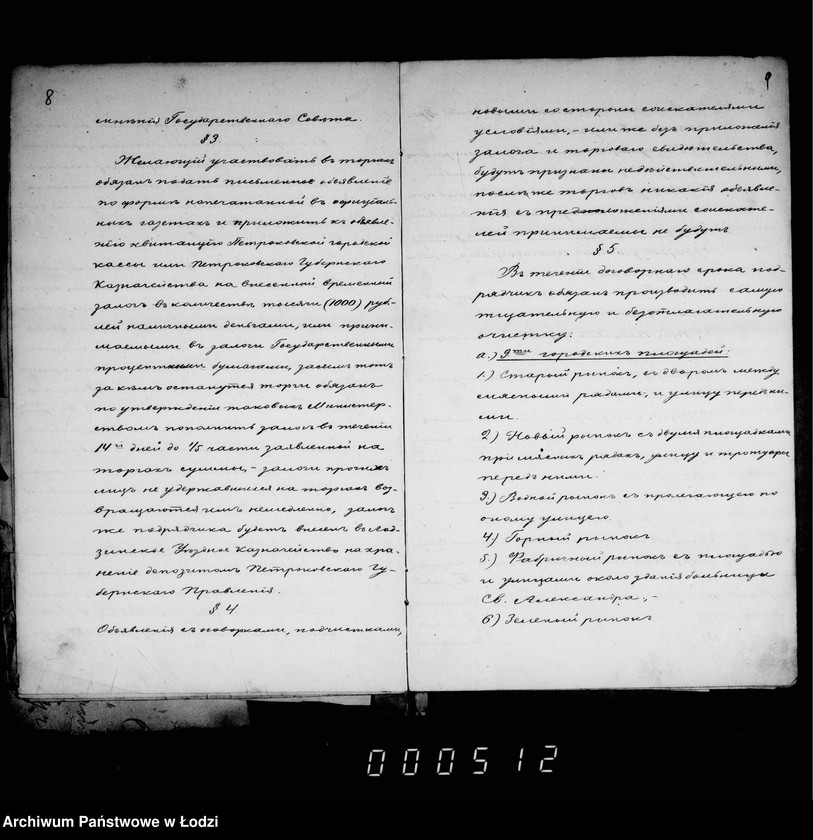 8
мнѣнія Государственнаго Совѣта.
§ 3.
Желающій участвовать въ торгахъ
обязанъ подать письменное объявленіе
по формѣ напечатанной въ офиціаль-
ныхъ газетахъ и приложить къ объявле-
нію квитанцію Петроковской городской
кассы или Петроковскаго Губернскаго
Казначейства на внесенный временный
залогъ въ количествѣ тысячи (1000) руб-
лей наличными деньгами, или прини-
маемыми въ залоги Государственными
процентными бумагами, засимъ тотъ
за кѣмъ останутся торги обязанъ
по утвержденіи таковыхъ Министер-
ствомъ пополнить залогъ въ теченіи
14 дней до 1/5 части заявленной на
торгахъ суммы, - залоги прочихъ
лицъ не удержавшихся на торгахъ воз-
вращаются имъ немедленно, залогъ
же подрядчика будетъ внесенъ въ Лод-
зинское Уѣздное Казначейство на хра-
неніе депозитомъ Петроковскаго Гу-
бернскаго Правленія.
§ 4
Объявленія съ оговорками, подчистками,
9
новыми со стороны соискателями
условіями, - или же безъ приложенія
залога и торговаго свидѣтельства,
будутъ признаны недѣйствительными,
послѣ же торговъ никакія объявле-
нія съ предложеніями соискате-
лей принимаемы не будутъ
§ 5
Въ теченіи договорнаго срока под-
рядчикъ обязанъ производить самую
тщательную и безотлагательную
очистку:
а.) 9ти городскихъ площадей:
1.) Старый рынокъ, съ дворомъ между
мясными рядами, и улицу передъ ни-
ми.
2) Новый рынокъ съ двумя площадками
при мясныхъ рядахъ, улицу и тротуары
передъ ними.
3.) Водный рынокъ съ пролегающею по
оному улицею.
4.) Горный рынокъ
5.) Фабричный рынокъ съ площадью
и улицами около зданія больницы
Св. Александра, -
6) Зеленый рынокъ.
000512
Archiwum Państwowe w Łodzi